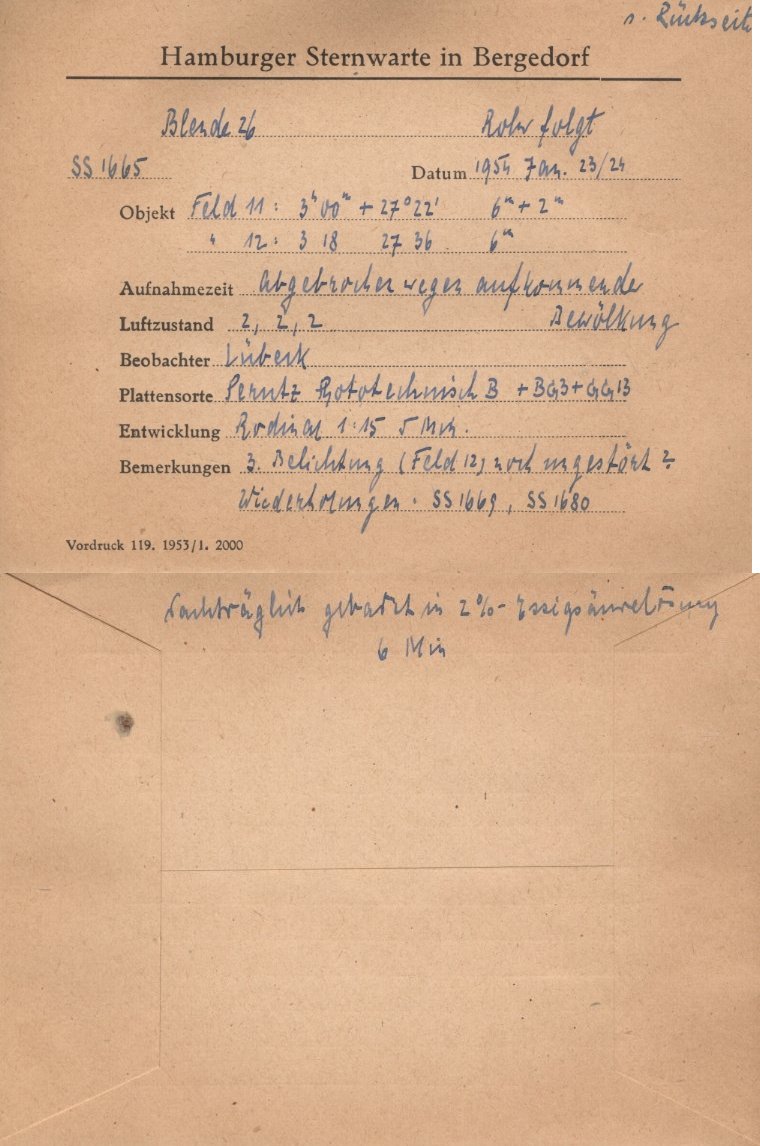 s. Rückseite
Hamburger Sternwarte in Bergedorf
Blende 26 Rohr folgt
SS 1665 Datum 1954 Jan. 23/24
Objekt Feld 11 : 3ʰ 00ᵐ + 27° 22' 6ᵐ + 2ᵐ
" 12 : 3 18 27 36 6ᵐ
Aufnahmezeit abgebrochen wegen aufkommende
Luftzustand 2, 2, 2 Bewölkung
Beobachter Lübeck
Plattensorte Perutz Phototechnisch B + BG3 + GG13
Entwicklung Rodinal 1:15 5 Min.
Bemerkungen 3. Belichtung (Feld 12) noch ungestört ?
Wiederholungen : SS 1669, SS 1680
Vordruck 119. 1953/1. 2000
Nachträglich gebadet in 2%- Essigsäurelösung
6 Min